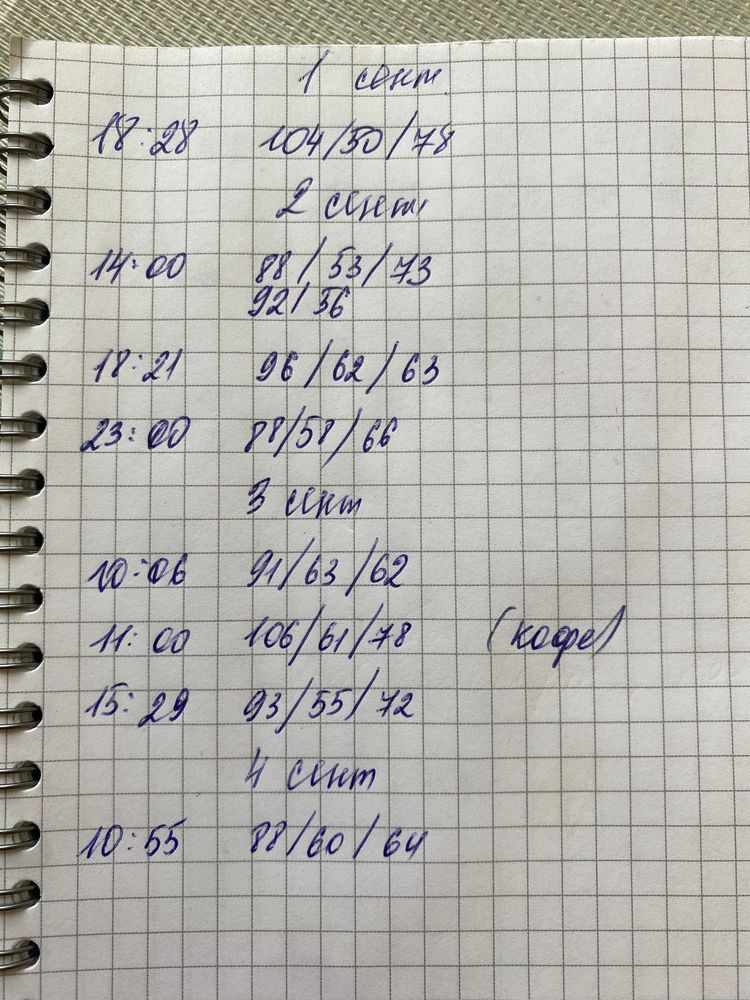 1 сент.
18:28 104/50/78
2 сент
14:00 88/53/73
92/56
18:21 96/62/63
23:00 88/58/66
3 сент
10:06 91/63/62
11:00 106/61/78 (кофе)
15:29 93/55/72
4 сент
10:55 88/60/64